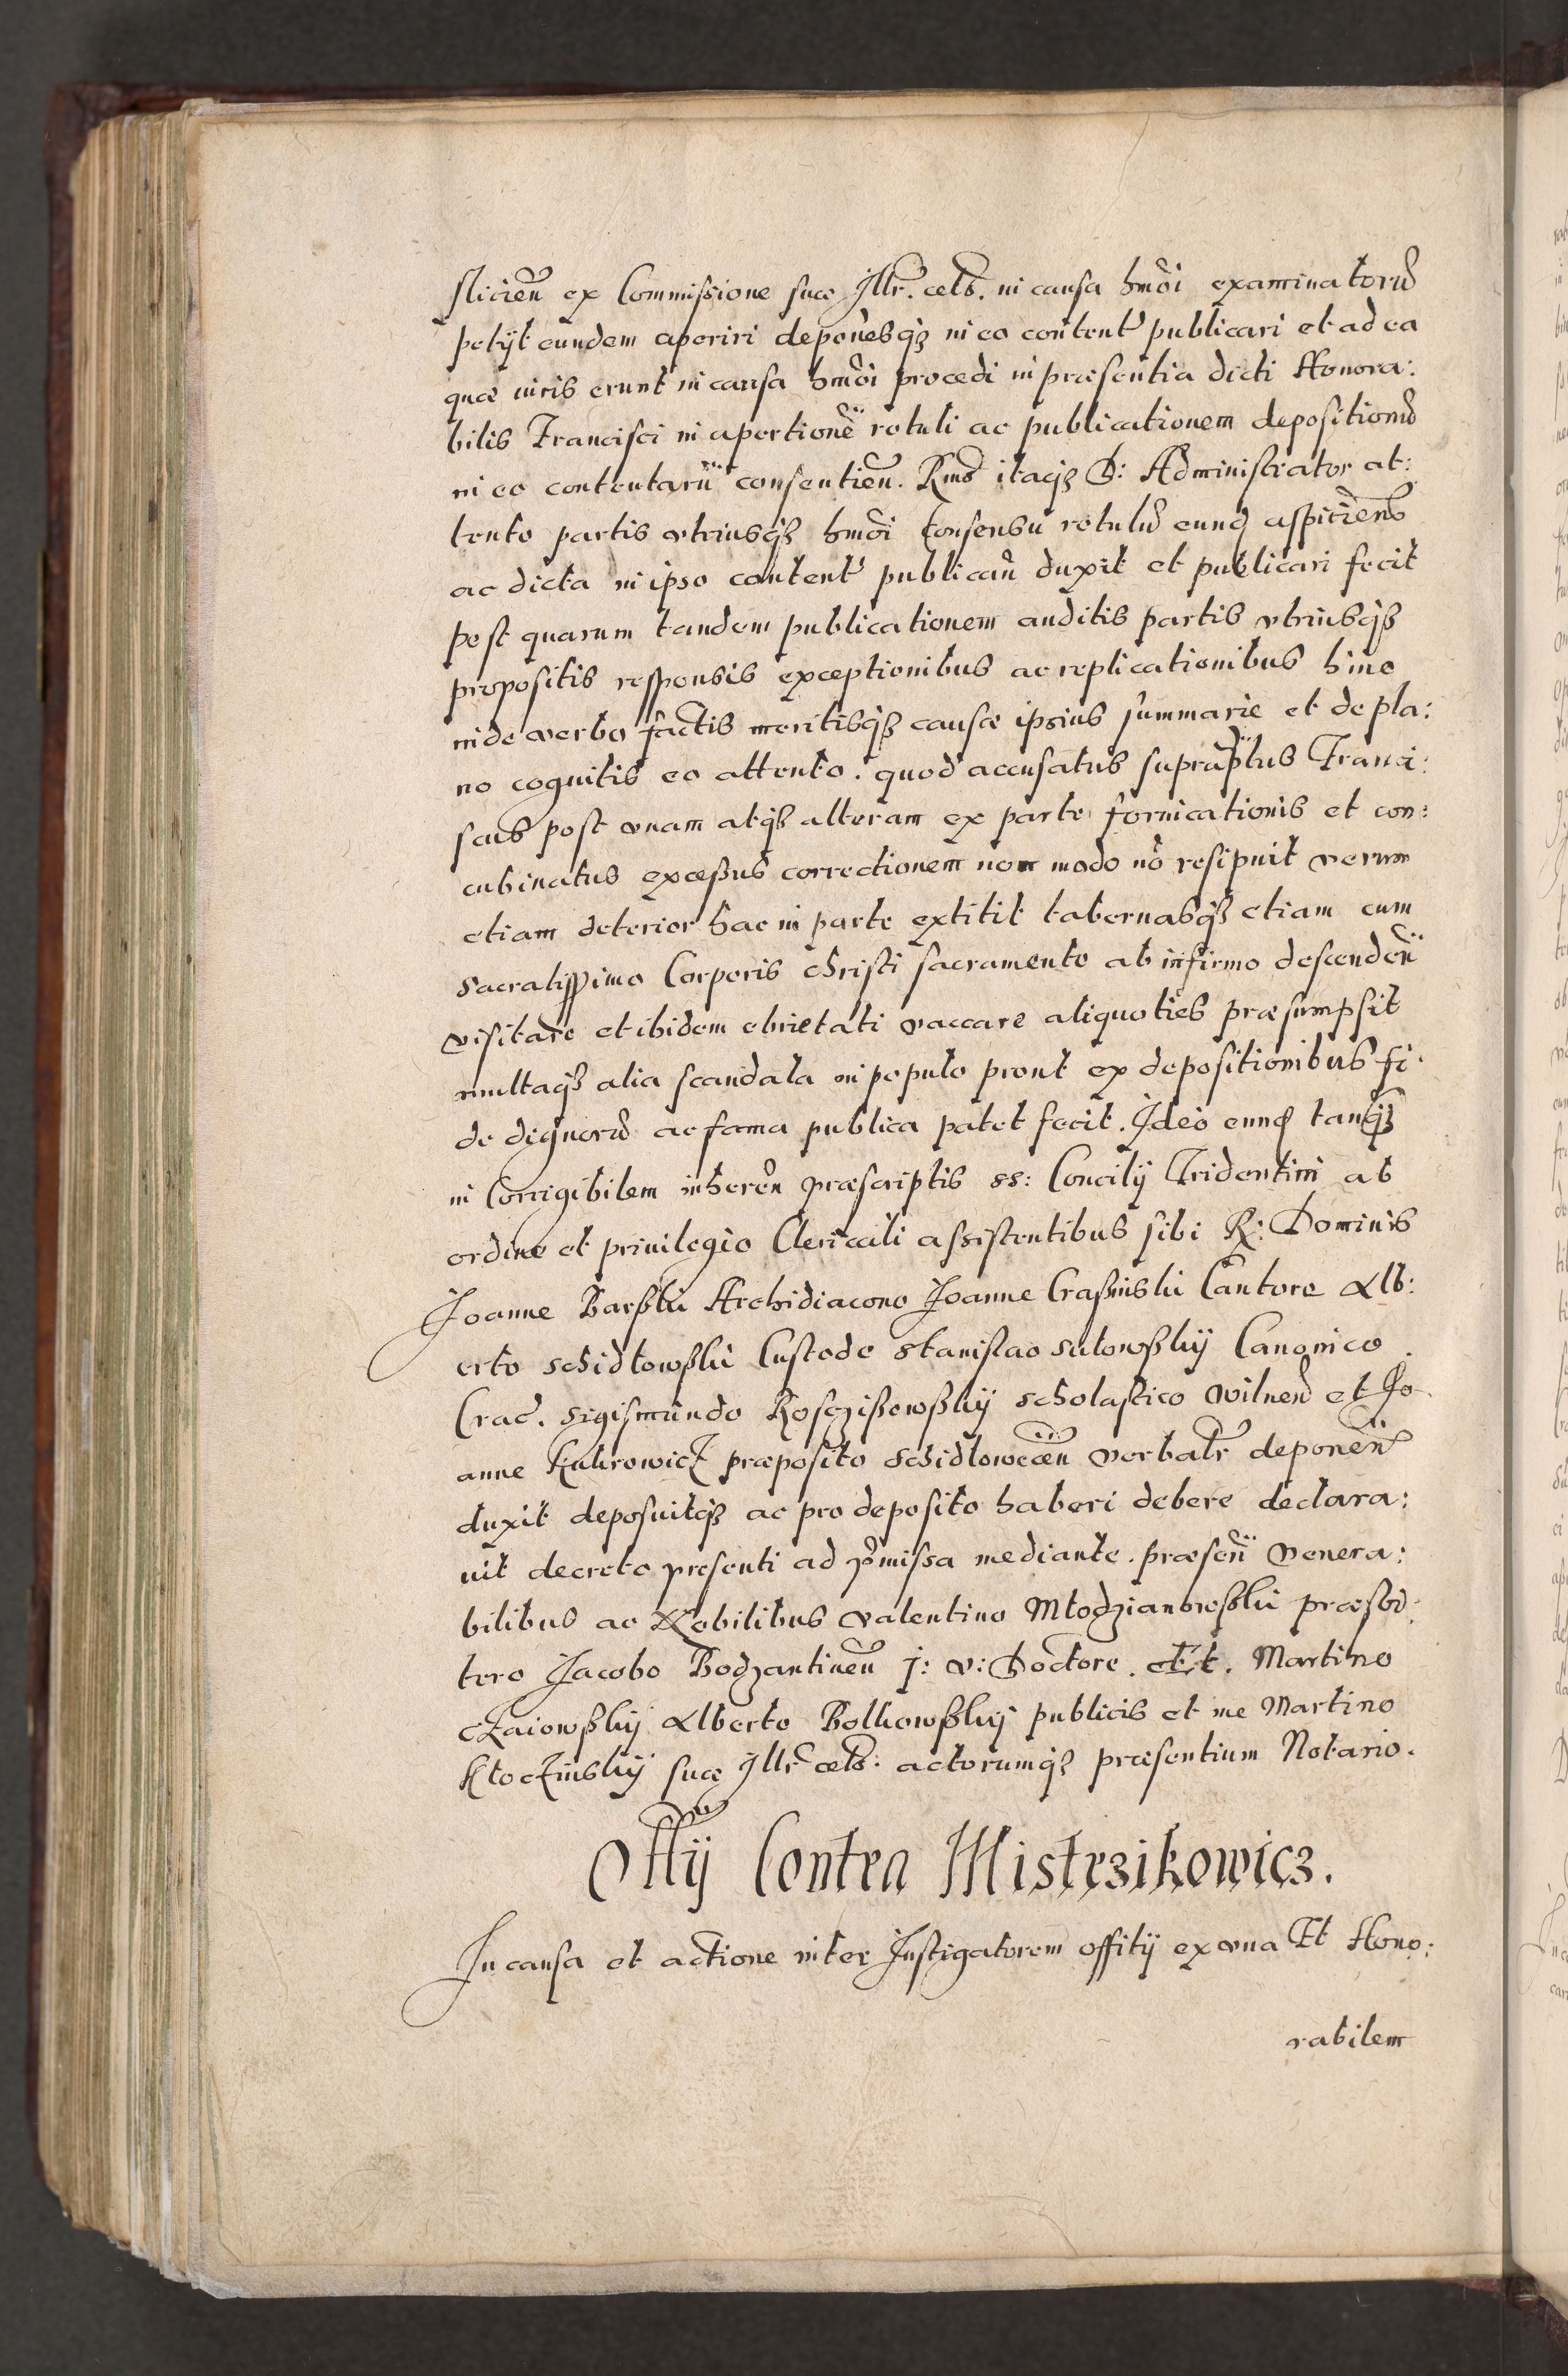 slicien̄ ex Commissione suæ Jllr̄. cels. in causa hmōi examinatorū
petijt eundem aperiri deponēsq₃ in eo content' publicari et ad ea
quæ iuris erunt in causa hmōi procedi in præsentia dicti Honora:
bilis Francisci in apertionē rotuli ac publicationem depositionū
in eo contentarū consentien̄. Rmūs itaq₃ D: Administrator at:
tento partis vtriusq₃ hmōi Consensu rotulū eund aspicien̄
ac dicta in ipso content' publican̄ duxit et publicari fecit
post quarum tandem publicationem auditis partis vtriusq₃
propositis responsis exceptionibus ac replicationibus hinc
inde verbo factis meritisq₃ causæ ipsius summarie et de pla:
no cognitis eo attento. quod accusatus suprap̄tus Franci:
scus post vnam atq₃ alteram ex parte fornicationis et con:
cubinatus excessus correctionem non modo nō resipuit verum
etiam deterior hac in parte extitit tabernasq₃ etiam cum
sacratissimo Corporis christi sacramento ab infirmo descenden̄
visitare et ibidem ebrietati vaccare aliquoties præsumpsit
multaq₃ alia scandala in populo prout ex depositionibus fi:
de dignorū ac fama publica patet fecit. Jdeo eund tanq₃
in Corrigibilem inheren̄ præscriptis ss: Concilij Tridentini ab
ordine et priuilegio Clericali assistentibus sibi R: Dominis
Joanne Barski Archidiacono Joanne Craßinski Cantore Alb:
erto schidłowßki Custode stanislao sułowßkij Canonico
Crac̄. sigismundo Rosczißewßkij scholastico Vilnen̄ et Jo
anne Kukrowicz præposito schidłowecen̄ verbalr̄ deponen̄
duxit deposuitq₃ ac pro deposito haberi debere declara:
uit decreto presenti ad p̄missa mediante. præsen̄ Venera:
bilibus ac Nobilibus valentino Młodzianowßki præsbi:
tero Jacobo Bodzantinen̄ J: v: Doctore. Et. Martino
cZaiowßkij Alberto Bolkowßkij publicis et me Martino
Kłoczinskij suæ Jllr̄ cels: actorumq₃ præsentium Notario.
Offij Contra Mistrzikowicz.
Jn causa et actione inter Jnstigatorem offitij ex vna Et Hono:
rabilem